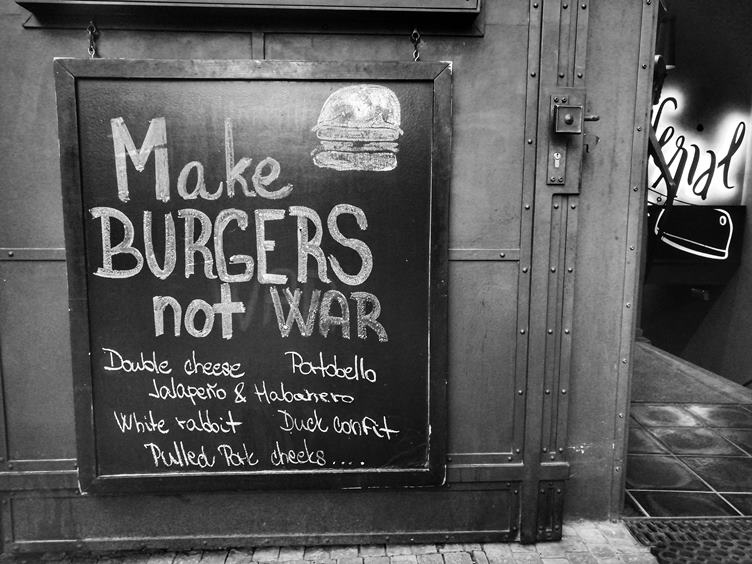 Make
BURGERS
not WAR
Double cheese Portobello
Jalapeño & Habanero
White rabbit Duck confit
Pulled Pork cheeks....